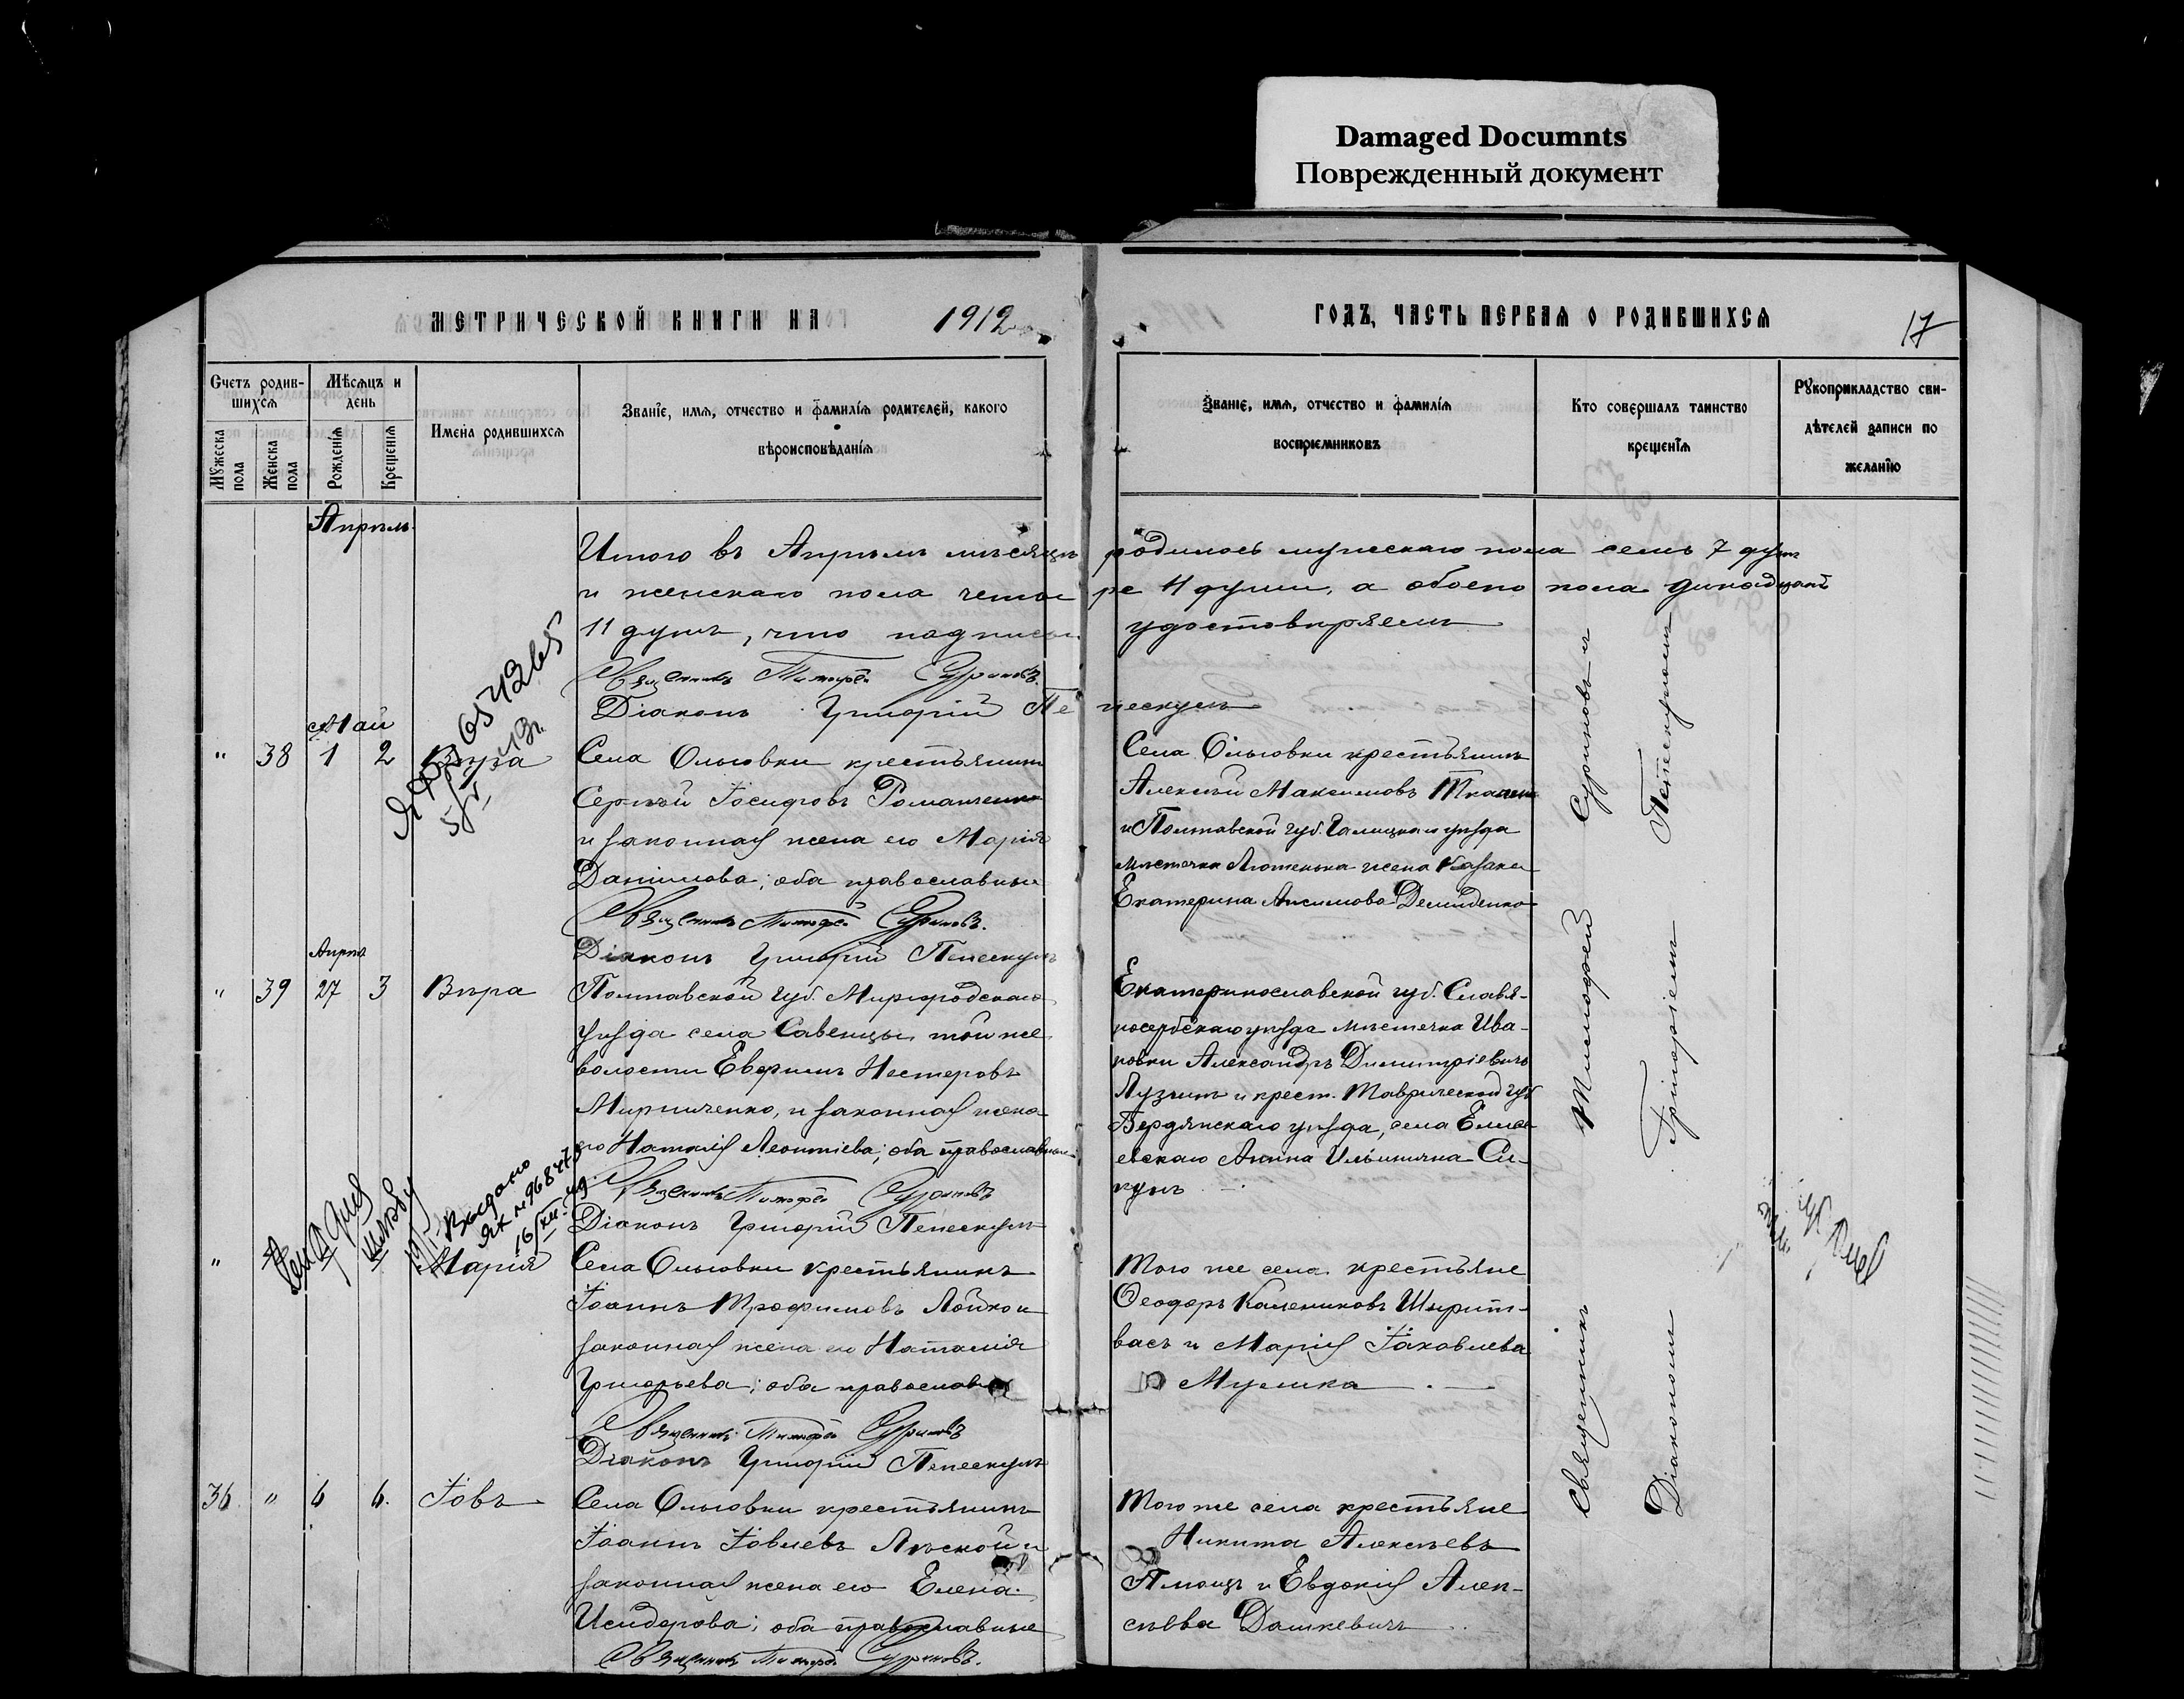 Damaged Documnts
Поврежденный документ
МЕТРИЧЕСКОЙ КНИГИ НА 1912
ГОДЪ, ЧАСТЬ ПЕРВАЯ О РОДИВШИХСЯ
17
Счетъ родив-
шихся
Мужеска пола
Женска пола
Мѣсяцъ и
день
Рожденія
Крещенія
Имена родившихся
Званіе, имя, отчество и фамилія родителей, какого
вѣроисповѣданія
Званіе, имя, отчество и фамилія
воспріемниковъ
Кто совершалъ таинство
крещенія
Рукоприкладство сви-
дѣтелей записи по
желанію
Апрѣль
Итого въ Апрѣлѣ мѣсяцѣ родилось мужескаго пола семь 7 душъ
и женскаго пола четыре 4 души, а обоего пола
11 душъ, что удостовѣряемъ
Священникъ Тимофей Суриковъ
Діаконъ Григорій
Май
" 38 1 2 Вѣра
Села Ольговки крестьянинъ
Сергѣй Іосифовъ Романченко
и законная жена его Марія
Данилова; оба православные
Священникъ Тимофей Суриковъ.
Діаконъ Григорій
Села Ольговки крестьянинъ
Алексѣй Максимовъ
и Полтавской губ. уѣзда
мѣстечка Лютенька жена казака
Екатерина Анисимова Демиденко
Апрѣля
" 39 27 3 Вѣра
Полтавской губ. Миргородскаго
уѣзда села Савенцы, той же
волости Евфимъ Нестеровъ
Мирниченко, и законная жена
его Наталія Леонтіева; оба православные
Священникъ Тимофей Суриковъ
Діаконъ Григорій
Екатеринославской губ. Славя-
носербскаго уѣзда мѣстечка Ива-
новки Александръ Димитріевичъ
и крест. Таврической губ
Бердянскаго уѣзда, села Елисе-
евскаго Анна Ильинична
Выдано
"
Марія
Села Ольговки крестьянинъ
Іоаннъ Трофимовъ Лойко и
законная жена его Наталія
Григорьева; оба православные
Священникъ Тимофей Суриковъ
Діаконъ Григорій
Того же села крестьяне
Ѳеодоръ
и Марія Іаковлева
Мулика
36 " 6 6. Іовъ
Села Ольговки крестьянинъ
Іоаннъ Іовлевъ Лѣской и
законная жена его Елена
Исидорова; оба православные
Священникъ Тимофей Суриковъ.
Того же села крестьяне
Никита Алексѣевъ
и Евдокія Алек-
сѣева Дашкевичъ
Священникъ Тимофей Суриковъ и
Діакономъ Григоріемъ